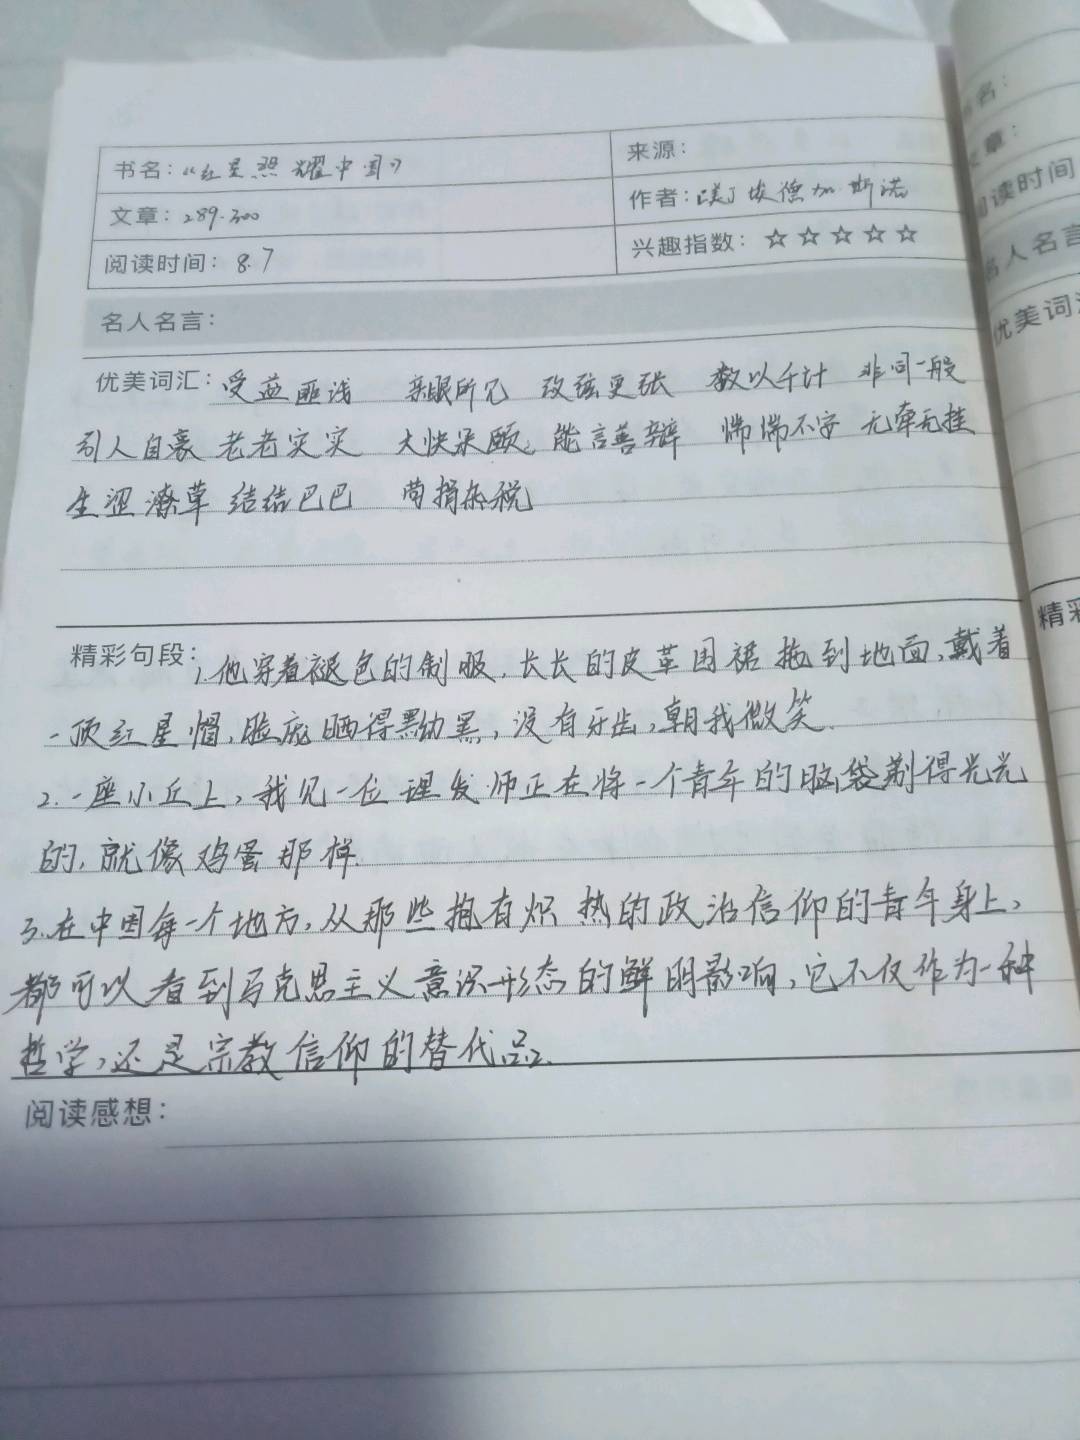 书名：《红星照耀中国》
来源：
文章：289-300
作者：[美]埃德加 斯诺
阅读时间：8.7
兴趣指数：☆☆☆☆☆
名人名言：
优美词汇：受益匪浅 亲眼所见 改弦更张 数以千计 非同一般
引人自衰 老老实实 大快朵颐 能言善辩 惴惴不安 无牵无挂
生涩潦草 结结巴巴 苛捐杂税
精彩句段：1.他穿着褪色的制服，长长的皮革围裙拖到地面，戴着
一顶红星帽，脸庞晒得黝黑，没有牙齿，朝我微笑.
2.一座小丘上，我见一位理发师正在将一个青年的脑袋剃得光光
的，就像鸡蛋那样.
3.在中国每一个地方，从那些抱有炽热的政治信仰的青年身上，
都可以看到马克思主义意识形态的鲜明影响，它不仅作为一种
哲学，还是宗教信仰的替代品.
阅读感想：
名：
章：
阅读时间
名人名言
优美词
精彩